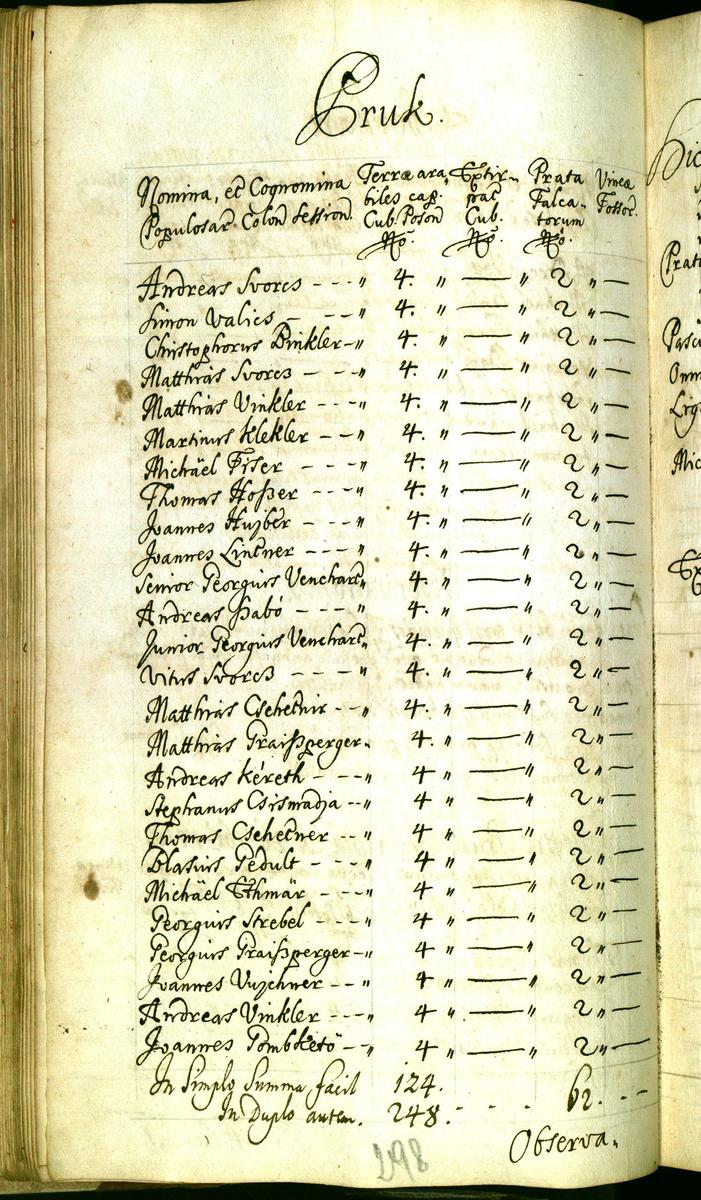 Pruk.
Nomina, et Cognomina Terræ ara, Extir- Prata Vineæ
Populosar Colon Session biles cap. pat Falca- Fossor.
Cub. Poson Cub. torum
No. No. No.
Andreas Svorcs - - - „ 4. „ — „ 2 „ —
Simon Valics - - - „ 4. „ — „ 2 „ —
Christophorus Binkler - „ 4. „ — „ 2 „ —
Matthias Svorcs - - - „ 4. „ — „ 2 „ —
Matthias Vinkler - - - „ 4. „ — „ 2 „ —
Martinus Klekler - - „ 4. „ — „ 2 „ —
Michäel Fiser - - - „ 4. „ — „ 2 „ —
Thomas Hoßer - - - „ 4. „ — „ 2 „ —
Joannes Hujber - - - „ 4. „ — „ 2 „ —
Joannes Lintner - - - „ 4. „ — „ 2 „ —
Senior Georgius Venchart „ 4. „ — „ 2 „ —
Andreas Szabó - - - „ 4. „ — „ 2 „ —
Junior Georgius Venchart „ 4. „ — „ 2 „ —
Vitus Svorcs - - - „ 4. „ — „ 2 „ —
Matthias Cshetnir - - „ 4. „ — „ 2 „ —
Matthias Graißperger. 4. „ — „ 2 „ —
Andreas Kéreth - - - „ 4 „ — „ 2 „ —
Stephanus Csismadja - - „ 4 „ — „ 2 „ —
Thomas Cshetner - - „ 4 „ — „ 2 „ —
Blasius Pedult - - - „ 4 „ — „ 2 „ —
Michäel Ethmär - - - „ 4 „ — „ 2 „ —
Georgius Strebel - - - „ 4 „ — „ 2 „ —
Georgius Graißperger - „ 4 „ — „ 2 „ —
Joannes Vujchner - - „ 4 „ — „ 2 „ —
Andreas Vinkler - - - „ 4 „ — „ 2 „ —
Joannes Gombkető - - „ 4 „ — „ 2 „ —
In Simplo Summa facit 124. 62. - -
In Duplo autem. 248. - - -
Observa„
298